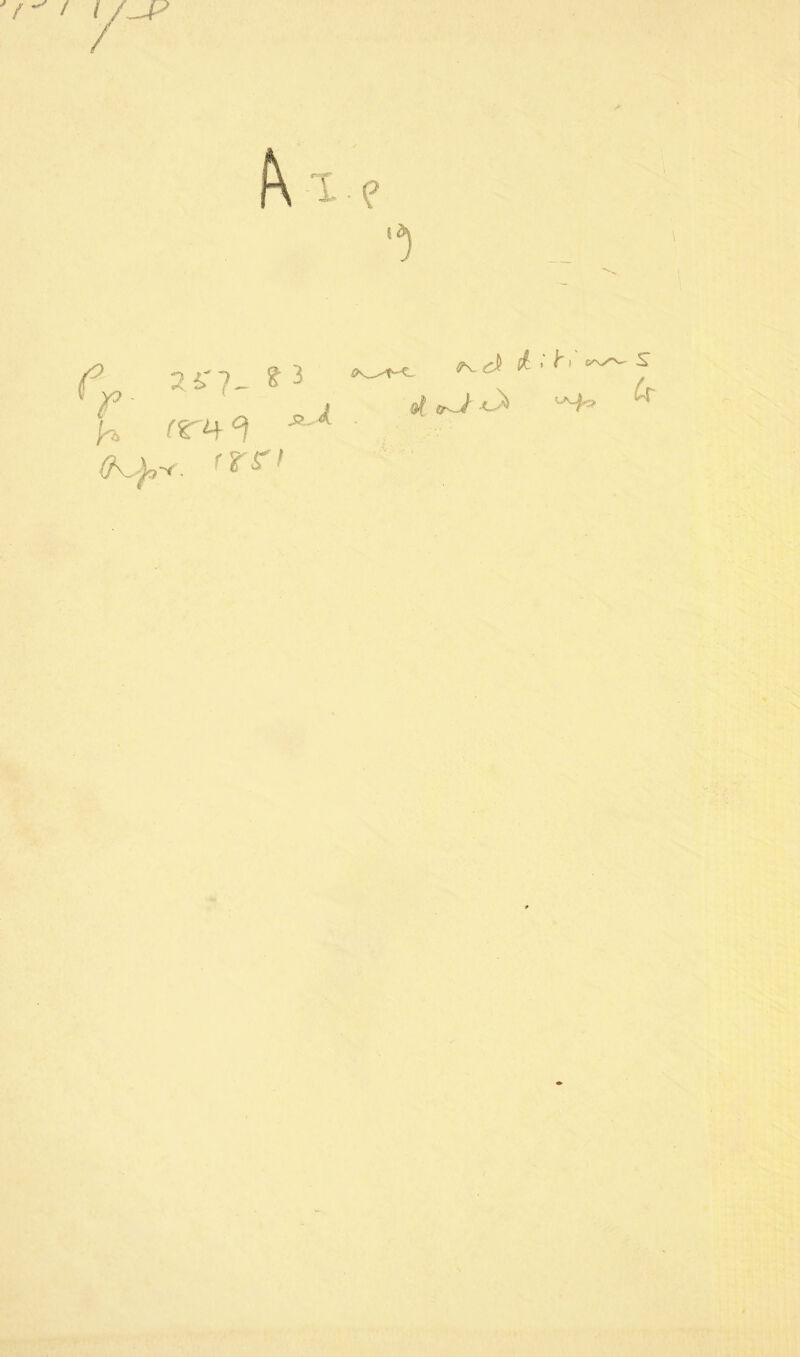 A I e
Pp. 257-83 are additions
to 1849 ed. dated up to
Apr. 1851